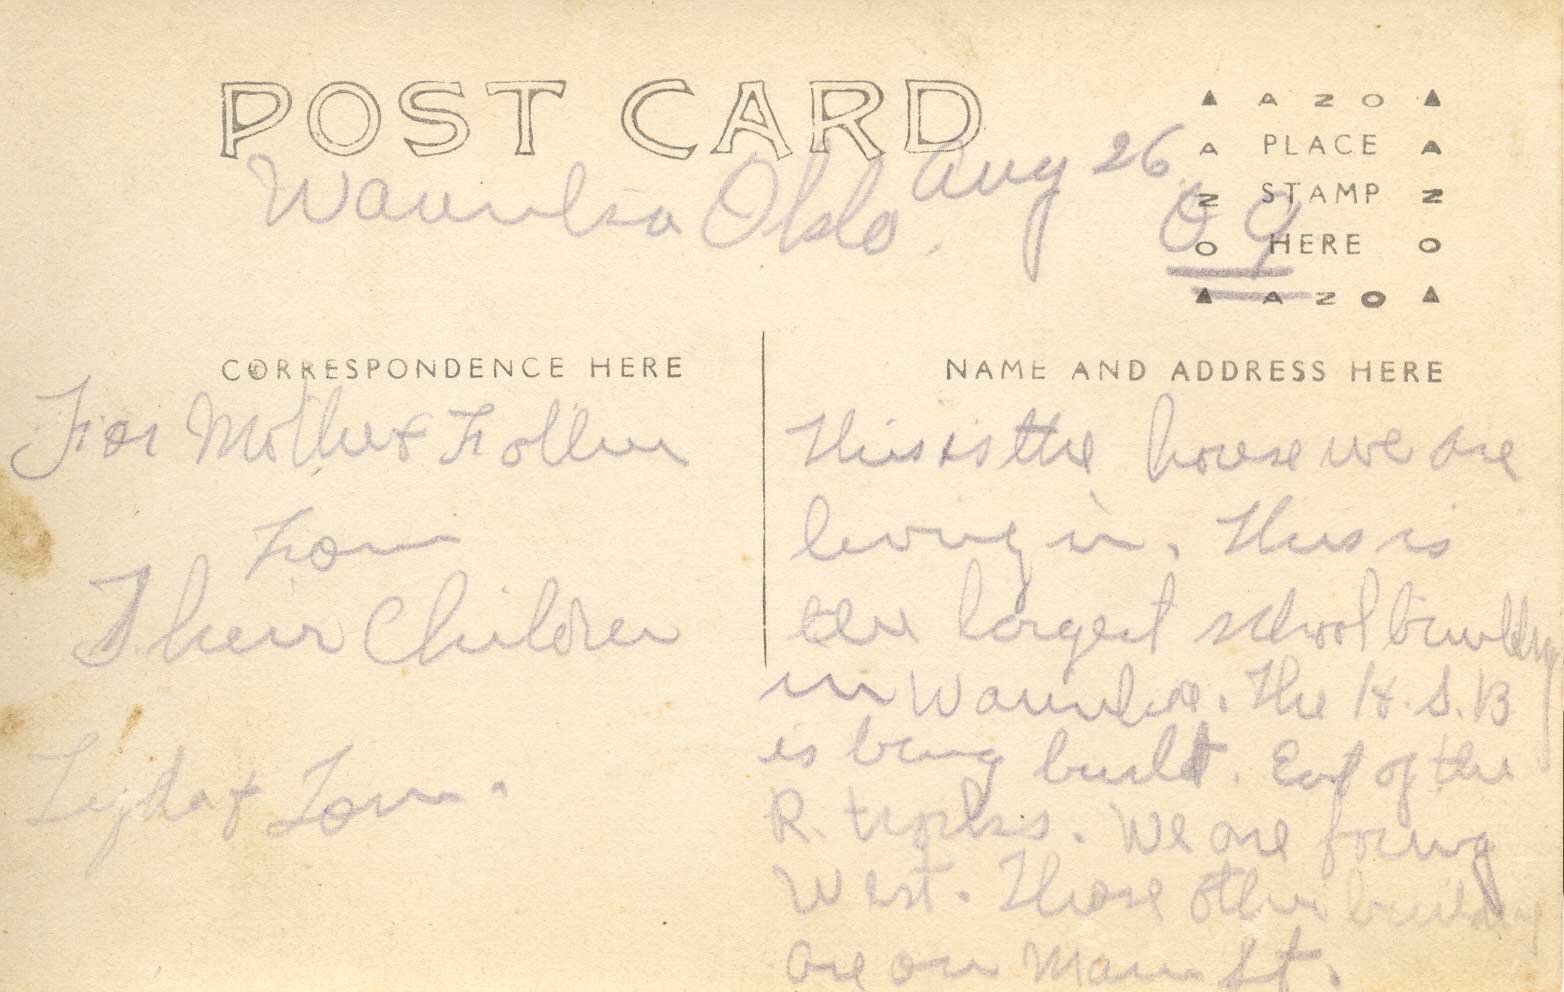 POST CARD
AZO
A PLACE A
A STAMP N
N HERE O
O
AZO
Waurika Okla. Aug 26
09
CORRESPONDENCE HERE
For Mother & Father
from
Their Children
Lyda & Tom.
NAME AND ADDRESS HERE
This is the house we are
living in. This is
the largest school building
in Waurika. The H.S.B
is being built. East of the
R. tracks. We are facing
West. Those other buildings
are on Main St.